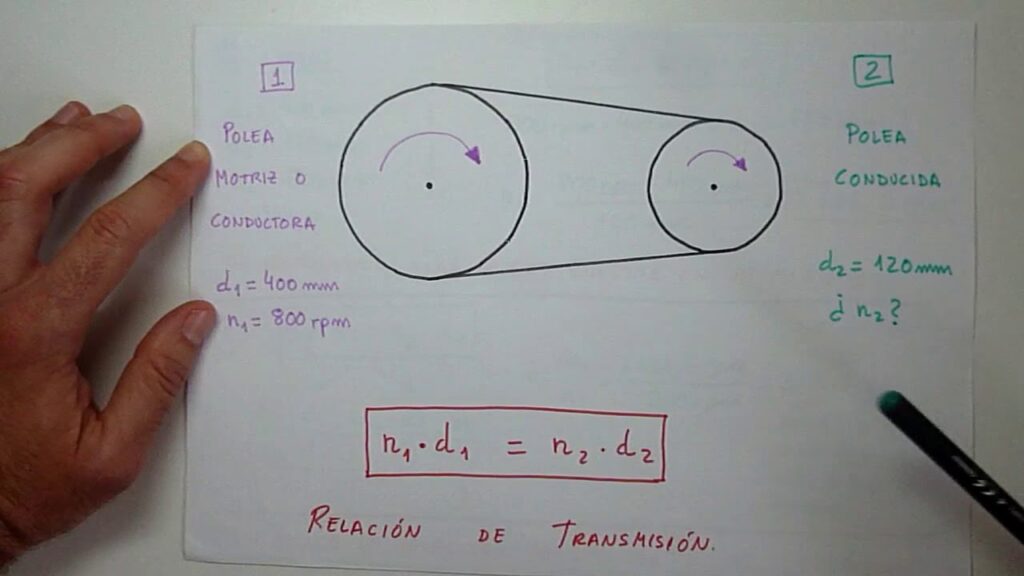 1
POLEA
MOTRIZ O
CONDUCTORA
d₁ = 400 mm
n₁ = 800 rpm
2
POLEA
CONDUCIDA
d₂ = 120 mm
¿ n₂?
n₁ · d₁ = n₂ · d₂
RELACIÓN DE TRANSMISIÓN.